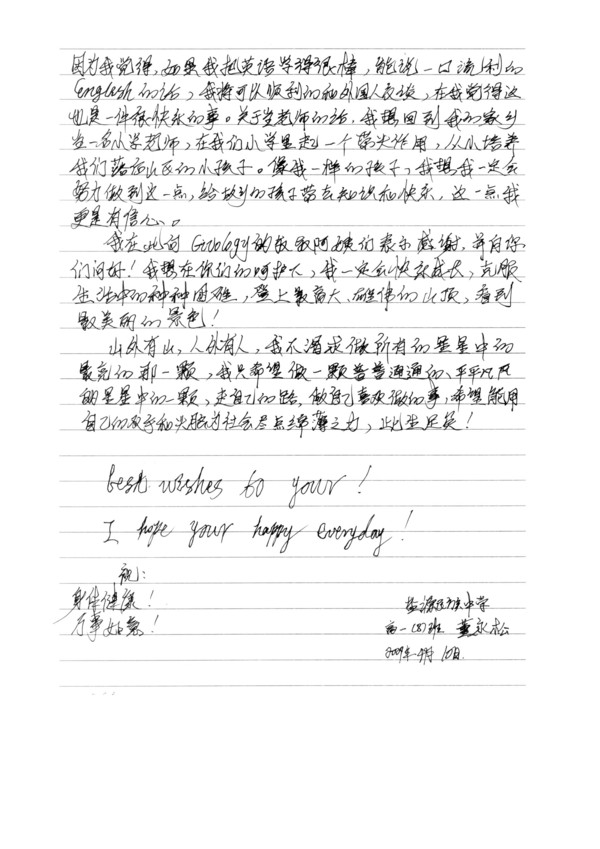 因为我觉得，如果我把英语学得很棒，能说一口流利的
English的话，我将可以顺利的和外国人交谈，在我觉得这
也是一件很快乐的事。关于当老师的话，我想回到我的家乡
当一名小学老师，在我们小学里起一个带头作用，从小培养
我们落后山区的小孩子。像我一样的孩子，我想我一定会
努力做到这一点，给故乡的孩子带去知识和快乐，这一点我
更是有信心。
我在此向 Geology的叔叔阿姨们表示感谢，并向你
们问好！我想在你们的呵护下，我一定会快乐成长，克服
生活中的种种困难，登上最高大、雄伟的山顶，看到
最美丽的景色！
山外有山，人外有人，我不渴求做所有的星星中的
最亮的那一颗，我只希望做一颗普普通通的、平平凡凡
的星星中的一颗，走自己的路，做自己喜欢做的事，希望能用
自己的双手和头脑为社会尽点绵薄之力，此生足矣！
best wishes to your！
I hope your happy everyday！
祝：
身体健康！
万事如意！
盐源民族中学
高一(8)班 董永松
2009年 月10日.